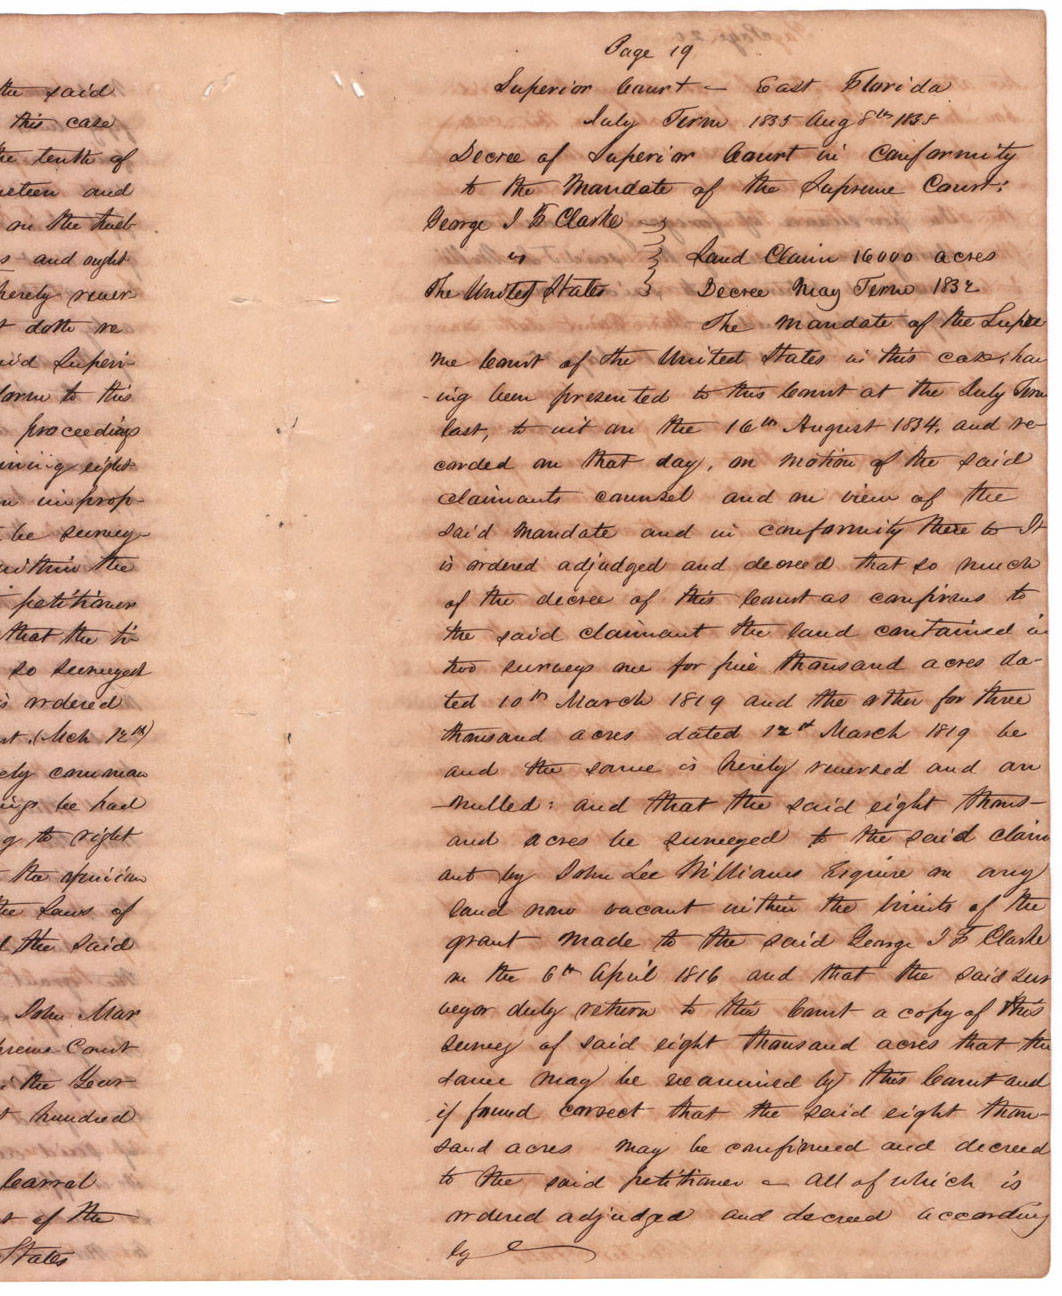 the said
this case
the tenth of
neteen and
on the truth
s and ought
hereby rever
t doth re
aid Superi-
form to this
proceedings
ining eight
in prop-
be survey-
within the
petitioner
that the ti-
so surveyed
is ordered
nt. (Mch 12th)
ely comman
ings be had
g to right
the opinion
the Laws of
d the said
John Mar
preme Court
the Year
t hundred
Carral
t of the
States
Page 19
Superior Court – East Florida
July Term 1835 Aug 8th 1835
Decree of Superior Court in conformity
to the Mandate of the Supreme Court:
George I F Clarke
vs Land Claim 16000 acres
The United States Decree May Term 1832
The Mandate of the Supre
me Court of the United States in this case, hav
-ing been presented to this Court at the July Term
last, to wit on the 16th August 1834, and re-
corded on that day, on motion of the said
claimants counsel and on view of the
said Mandate and in conformity there to It
is ordered adjudged and decreed that so much
of the decree of this Court as confirms to
the said claimant the land contained in
two surveys one for five thousand acres da-
ted 10th March 1819 and the other for three
thousand acres dated 12th March 1819 be
and the same is hereby reversed and an
-nulled: and that the said eight thous-
and acres be surveyed to the said claim
ant by John Lee Williams Esquire on any
land now vacant within the limits of the
grant made to the said George I F Clarke
on the 6th April 1816 and that the said sur
veyor duly return to this Court a copy of this
survey of said eight thousand acres that the
same may be examined by this Court and
if found correct that the said eight thou-
sand acres may be confirmed and decreed
to the said petitioner – all of which is
ordered adjudged and decreed according
ly